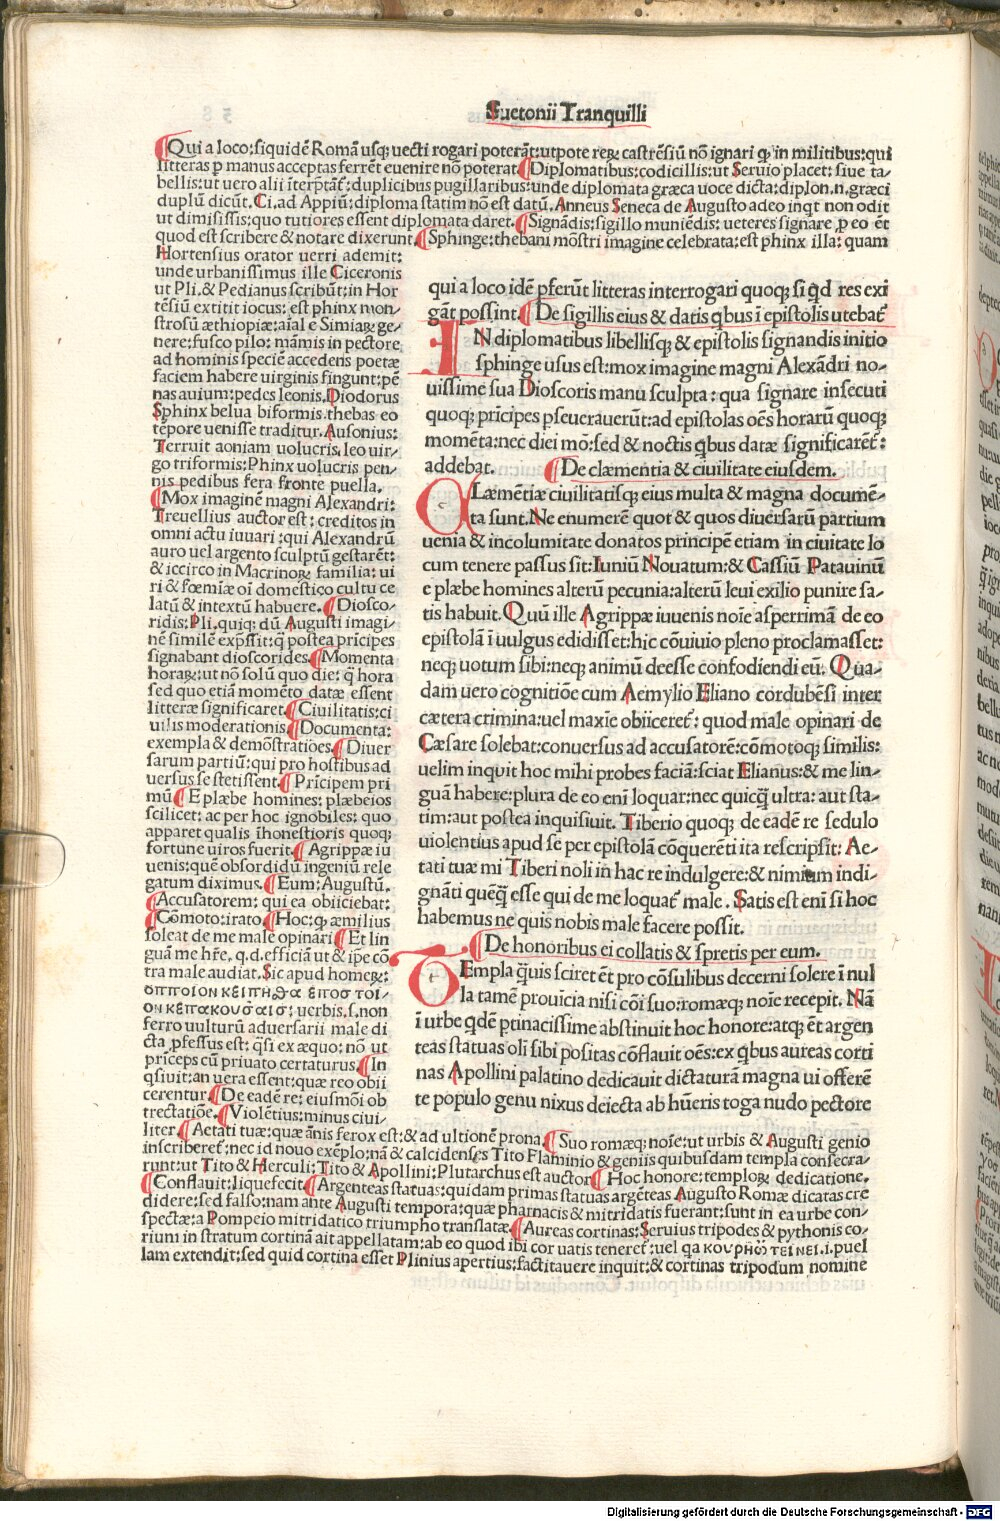 Suetonii Tranquilli
¶Qui a loco:siquidē Romā usq; uecti rogari poterāt:utpote reꝝ castrēsiū nō ignari qꝫ in militibus:qui
litteras ꝑ manus acceptas ferrēt euenire nō poterat.¶Diplomatibus:codicillis:ut Seruio placet: siue ta-
bellis:ut uero alii īterp̄tāt̄: duplicibus pugillaribus:unde diplomata græca uoce dicta:diplon.n.græci
duplū dicūt. Ci.ad Appiū: diploma statim nō est datū. Anneus Seneca de Augusto adeo inqt non odit
ut dimisissis:quo tutiores essent diplomata daret.¶Signādis:sigillo muniēdis: ueteres signare ꝓ eo ēt
quod est scribere & notare dixerunt.¶Sphinge:thebani mōstri imagine celebrata:est phinx illa: quam
Hortensius orator uerri ademit:
unde urbanissimus ille Ciceronis
ut Pli.& Pedianus scribūt:in Hor
tēsiū extitit iocus: est phinx mon-
strosū æthiopiæ:aīal e Simiaꝝ ge-
nere:fusco pilo: māmis in pectore
ad hominis speciē accedēs poetæ
faciem habere uirginis fingunt:pē
nas auium:pedes leonis. Diodorus
Sphinx belua biformis.thebas eo
tēpore uenisse traditur. Ausonius:
Terruit aoniam uolucris, leo uir-
go triformis:Phinx uolucris pen-
nis pedibus fera fronte puella.
¶Mox imaginē magni Alexandri:
Treuellius auctor est: creditos in
omni actu iuuari : qui Alexandrū
auro uel argento sculptū gestarēt:
& iccirco in Macrinoꝝ familia: ui
ri & fœmiæ oī domestico cultu ce
latū & intextū habuere.¶Diosco-
ridis:Pli.quiq; dū Augusti imagi-
nē similē exp̄ssit:q̄ postea prīcipes
signabant dioscorides.¶Momenta
horaꝝ:ut nō solū quo die: q̄ hora
sed quo etiā momēto datæ essent
litteræ significaret.¶Ciuilitatis:ci
uilis moderationis.¶Documenta:
exempla & demōstratiōes.¶Diuer
sarum partiū:qui pro hostibus ad
uersus se stetissent.¶Prīcipem pri
mū¶E plæbe homines: plæbeios
scilicet: ac per hoc ignobiles: quo
apparet qualis īhonestioris quoq;
fortune uiros fuerit.¶Agrippæ iu
uenis:quē obsordidū ingeniū rele
gatum diximus.¶Eum:Augustū.
¶Accusatorem: qui ea obiiciebat:
¶Cōmoto:irato.¶Hoc:qꝫ æmilius
soleat de me male opinari¶Et lin
guā me hr̄e. q.d.efficiā ut & ip̄e cō
tra male audiat. Sic apud homeꝝ:
οπποιον κειπηθα εποσ τοι-
ον κεπακουσαισ: uerbis.s.non
ferro uulturū aduersarii male di
cta ꝓfessus est: q̄si ex æquo: nō ut
prīceps cū priuato certaturus.¶In
qsiuit:an uera essent:quæ reo obii
cerentur.¶De eadē re: eiusmōi ob
trectatiōe.¶Violētius:minus ciui-
qui a loco idē ꝑferūt litteras interrogari quoq; si qd res exi
gāt possint.¶De sigillis eius & datis qbus ī epistolis utebat̄
IN diplomatibus libellisq; & epistolis signandis initio
sphinge usus est:mox imagine magni Alexādri no-
uissime sua Dioscoris manu sculpta : qua signare insecuti
quoq; prīcipes pseuerauerūt:ad epistolas oēs horarū quoq;
momēta:nec diei mō:sed & noctis qbus datæ significarēt̄:
addebat. ¶De clæmentia & ciuilitate eiusdem.
CLæmētiæ ciuilitatisq; eius multa & magna documē-
ta sunt.Ne enumerē quot & quos diuersarū partium
uenia & incolumitate donatos principē etiam in ciuitate lo
cum tenere passus sit:Iuniū Nouatum:& Cassiū Patauinū
e plæbe homines alterū pecunia:alterū leui exilio punire sa-
tis habuit.Quū ille Agrippæ iuuenis noīe asperrimā de eo
epistolā ī uulgus edidisset:hic cōuiuio pleno proclamasset:
neq; uotum sibi:neq; animū deesse confodiendi eū. Qua-
dam uero cognitiōe cum Aemylio Eliano cordubēsi inter
cætera crimina:uel maxīe obiiceret̄: quod male opinari de
Cæsare solebat:conuersus ad accusatorē:cōmotoq; similis:
uelim inquit hoc mihi probes faciā:sciat Elianus:& me lin-
guā habere:plura de eo enī loquar:nec quicq̄ ultra: aut sta-
tim:aut postea inquisiuit. Tiberio quoq; de eadē re sedulo
uiolentius apud se per epistolā cōquerēti ita rescripsit: Ae-
tati tuæ mi Tiberi noli in hac re indulgere:& nimium indi-
gnāti quēq̄ esse qui de me loquat̄ male. Satis est enī si hoc
habemus ne quis nobis male facere possit.
¶De honoribus ei collatis & spretis per eum.
TEmpla q̄uis sciret ēt pro cōsulibus decerni solere ī nul
la tamē prouīcia nisi cōi suo:romæq; noīe recepit. Nā
ī urbe qdē ptinacissime abstinuit hoc honore:atq; ēt argen
teas statuas olī sibi positas cōflauit oēs:ex qbus aureas corti
nas Apollini palatino dedicauit dictaturā magna ui offerē
te populo genu nixus deiecta ab hūeris toga nudo pectore
liter.¶Aetati tuæ:quæ ānis ferox est:& ad ultionē prona.¶Suo romæq; noīe:ut urbis & Augusti genio
inscriberet̄:nec id nouo exēplo:nā & calcidenses Tito Flaminio & geniis quibusdam templa consecra-
runt:ut Tito & Herculi:Tito & Apollini:Plutarchus est auctor¶Hoc honore:temploꝝ dedicatione.
¶Conflauit:liquefecit.¶Argenteas statuas:quidam primas statuas argēteas Augusto Romæ dicatas cre
didere:sed falso:nam ante Augusti tempora:quæ pharnacis & mitridatis fuerant:sunt in ea urbe con-
spectæ:a Pompeio mitridatico triumpho translatæ.¶Aureas cortinas:Seruius tripodes & pythonis co-
riuni in stratum cortinā ait appellatam:ab eo quod ibi cor uatis teneret̄:uel qa κουρηω τεινει.i.puel
lam extendit:sed quid cortina esset Plinius apertius:factitauere inquit:& cortinas tripodum nomine
Digitalisierung gefördert durch die Deutsche Forschungsgemeinschaft - DFG